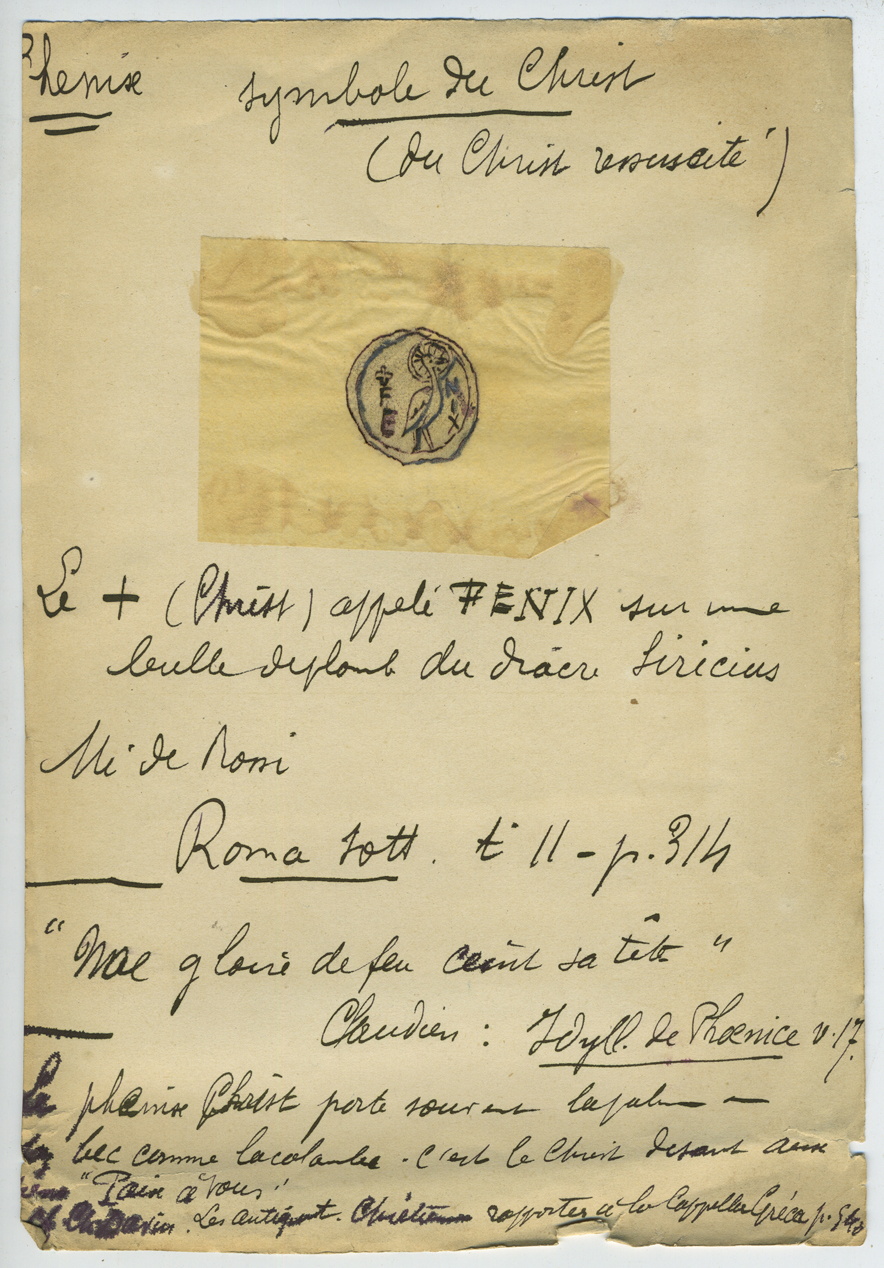 Phenix symbole du Christ
(du Christ ressuscité)
+FE NIX
Le + (Christ) appelé FENIX sur une
bulle de plomb du diacre Siricius
de Rossi
Roma sott. t. 11 - p. 314
"Une gloire de feu ceint sa tête"
Claudien : Idyll. de Phœnice v. 17.
Le phénix Christ porte souvent la palme
bec comme la colombe. c'est le Christ disant aux
"Paix à vous"
cf Ch. Davin. Les antiquit. Chrétiennes rapportées à la Cappella Gréca p.